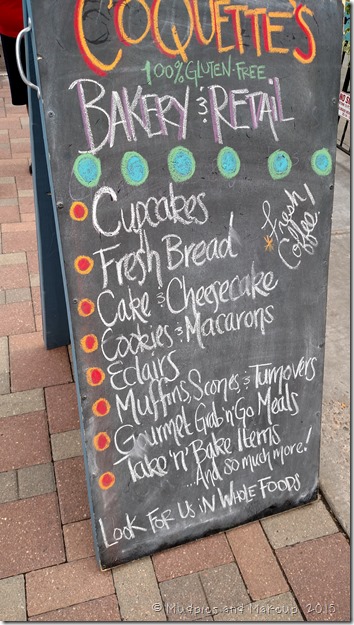 Coquette's
100% Gluten-Free
Bakery & Retail
Cupcakes
Fresh Coffee!
Fresh Bread
Cake & Cheesecake
Cookies & Macarons
Eclairs
Muffins, Scones & Turnovers
Gourmet Grab'n'Go Meals
Take 'n' Bake Items
...And so much more!
Look For Us in Whole Foods
© Mudpies and Makeup 2015